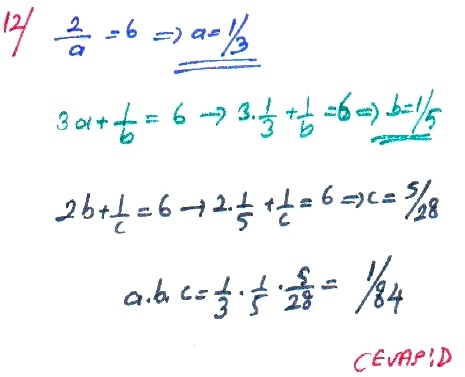 12/ 2/a = 6 => a = 1/3
3a + 1/b = 6 → 3.1/3 + 1/b = 6 => b = 1/5
2b + 1/c = 6 → 2.1/5 + 1/c = 6 => c = 5/28
a.b.c = 1/3 . 1/5 . 5/28 = 1/84
CEVAP:D